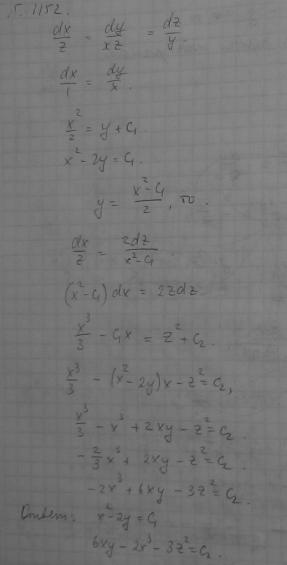 1152.
dx/z = dy/xz = dz/y.
dx/1 = dy/x.
x²/2 = y + C₁
x² - 2y = C₁.
y = (x² - C₁)/2, то.
dx/z = 2dz/(x² - C₁)
(x² - C₁) dx = 2zdz
x³/3 - C₁x = z² + C₂.
x³/3 - (x² - 2y)x - z² = C₂,
x³/3 - x³ + 2xy - z² = C₂.
-2/3 x³ + 2xy - z² = C₂.
-2x³ + 6xy - 3z² = C₂.
Ответ: x² - 2y = C₁
6xy - 2x³ - 3z² = C₂.